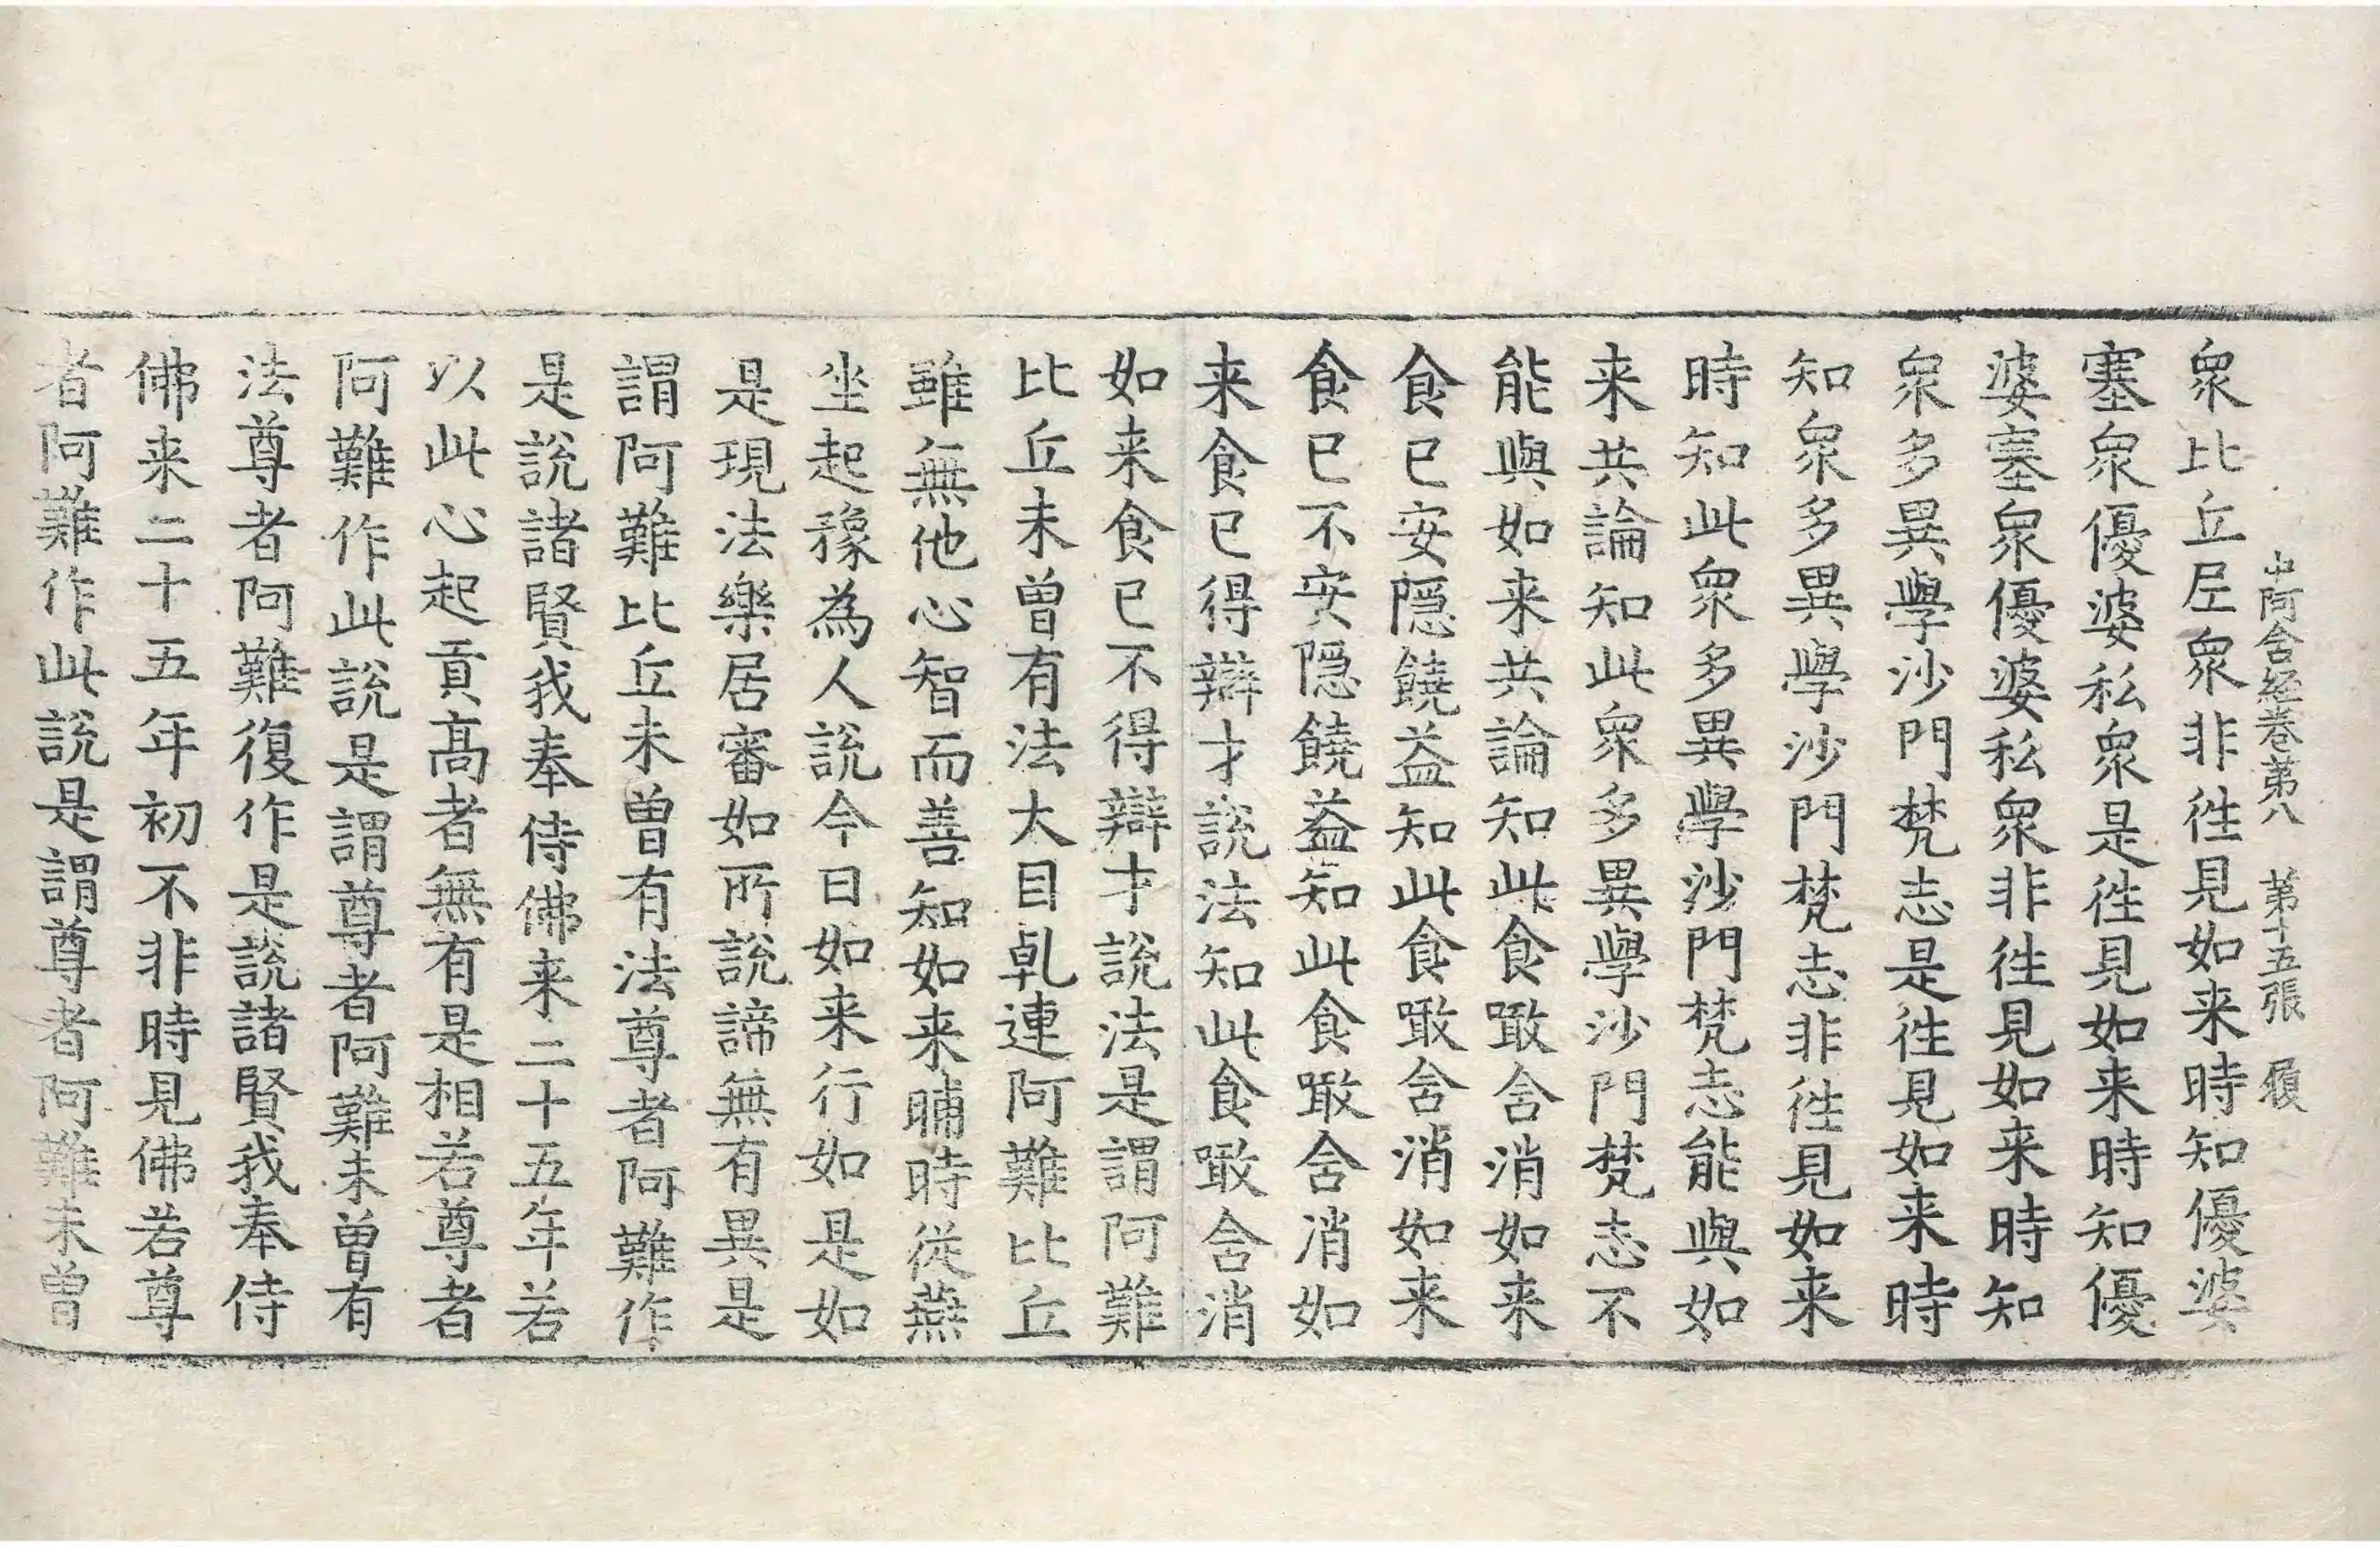 中阿含経巻苐八　苐十五張　履
衆比丘尼衆非徃見如来時知優婆
塞衆優婆私衆是徃見如来時知優
婆塞衆優婆私衆非徃見如来時知
衆多異學沙門梵志是徃見如来時
知衆多異學沙門梵志非徃見如来
時知此衆多異學沙門梵志能與如
来共論知此衆多異學沙門梵志不
能與如来共論知此食噉含消如来
食已安隱饒益知此食噉含消如来
食已不安隱饒益知此食噉含消如
来食已得辯才說法知此食噉含消
如来食已不得辯才說法是謂阿難
比丘未曾有法大目乹連阿難比丘
雖無他心智而善知如来晡時從燕
坐起豫為人說今日如来行如是如
是現法樂居審如所說諦無有異是
謂阿難比丘未曾有法尊者阿難作
是說諸賢我奉侍佛来二十五年若
以此心起貢髙者無有是相若尊者
阿難作此說是謂尊者阿難未曾有
法尊者阿難復作是說諸賢我奉侍
佛来二十五年初不非時見佛若尊
者阿難作此說是謂尊者阿難未曾